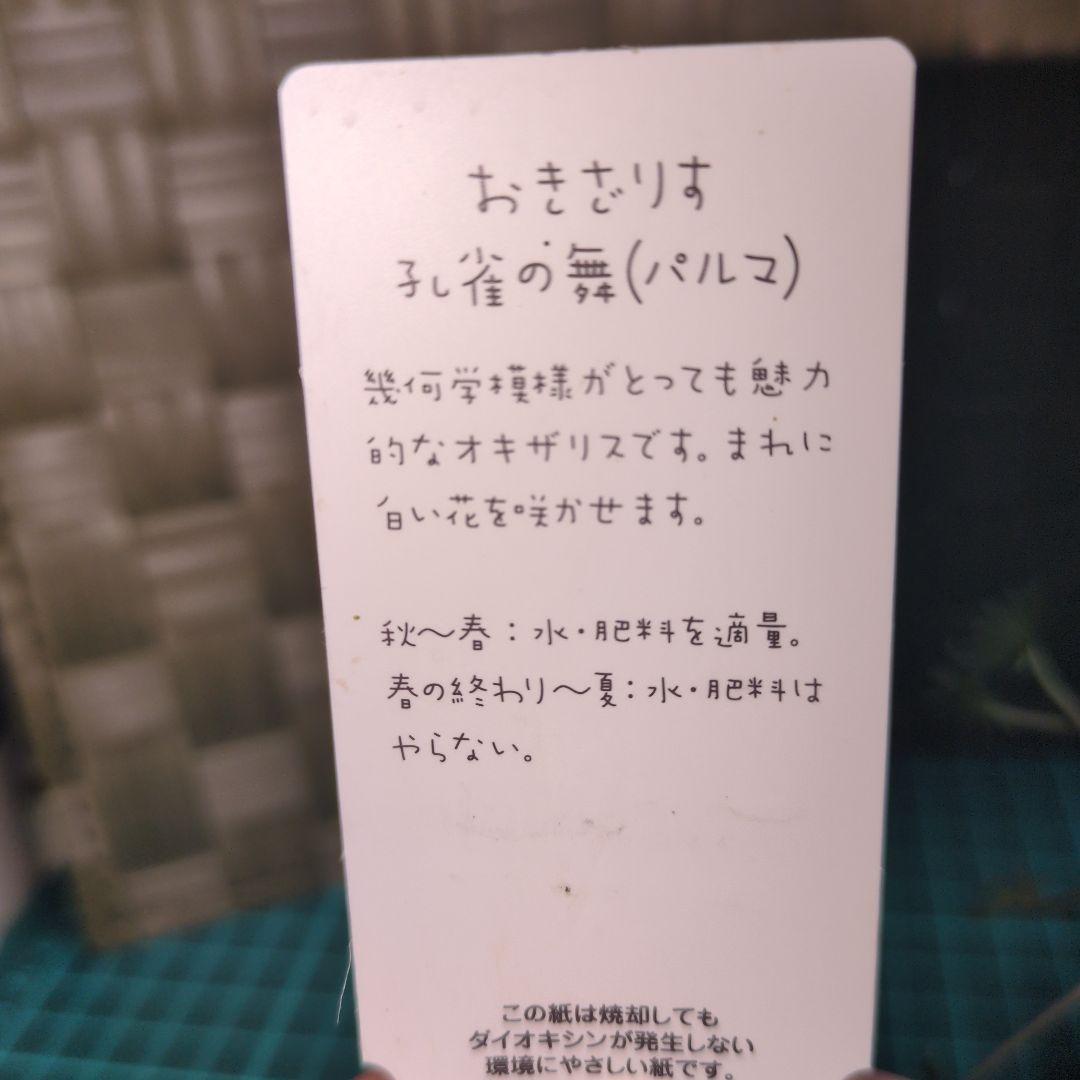 おきざりす
孔雀の舞(パルマ)
幾何学模様がとっても魅力
的なオキザリスです。まれに
白い花を咲かせます。
秋～春：水・肥料を適量。
春の終わり～夏：水・肥料は
やらない。
この紙は焼却しても
ダイオキシンが発生しない
環境にやさしい紙です。